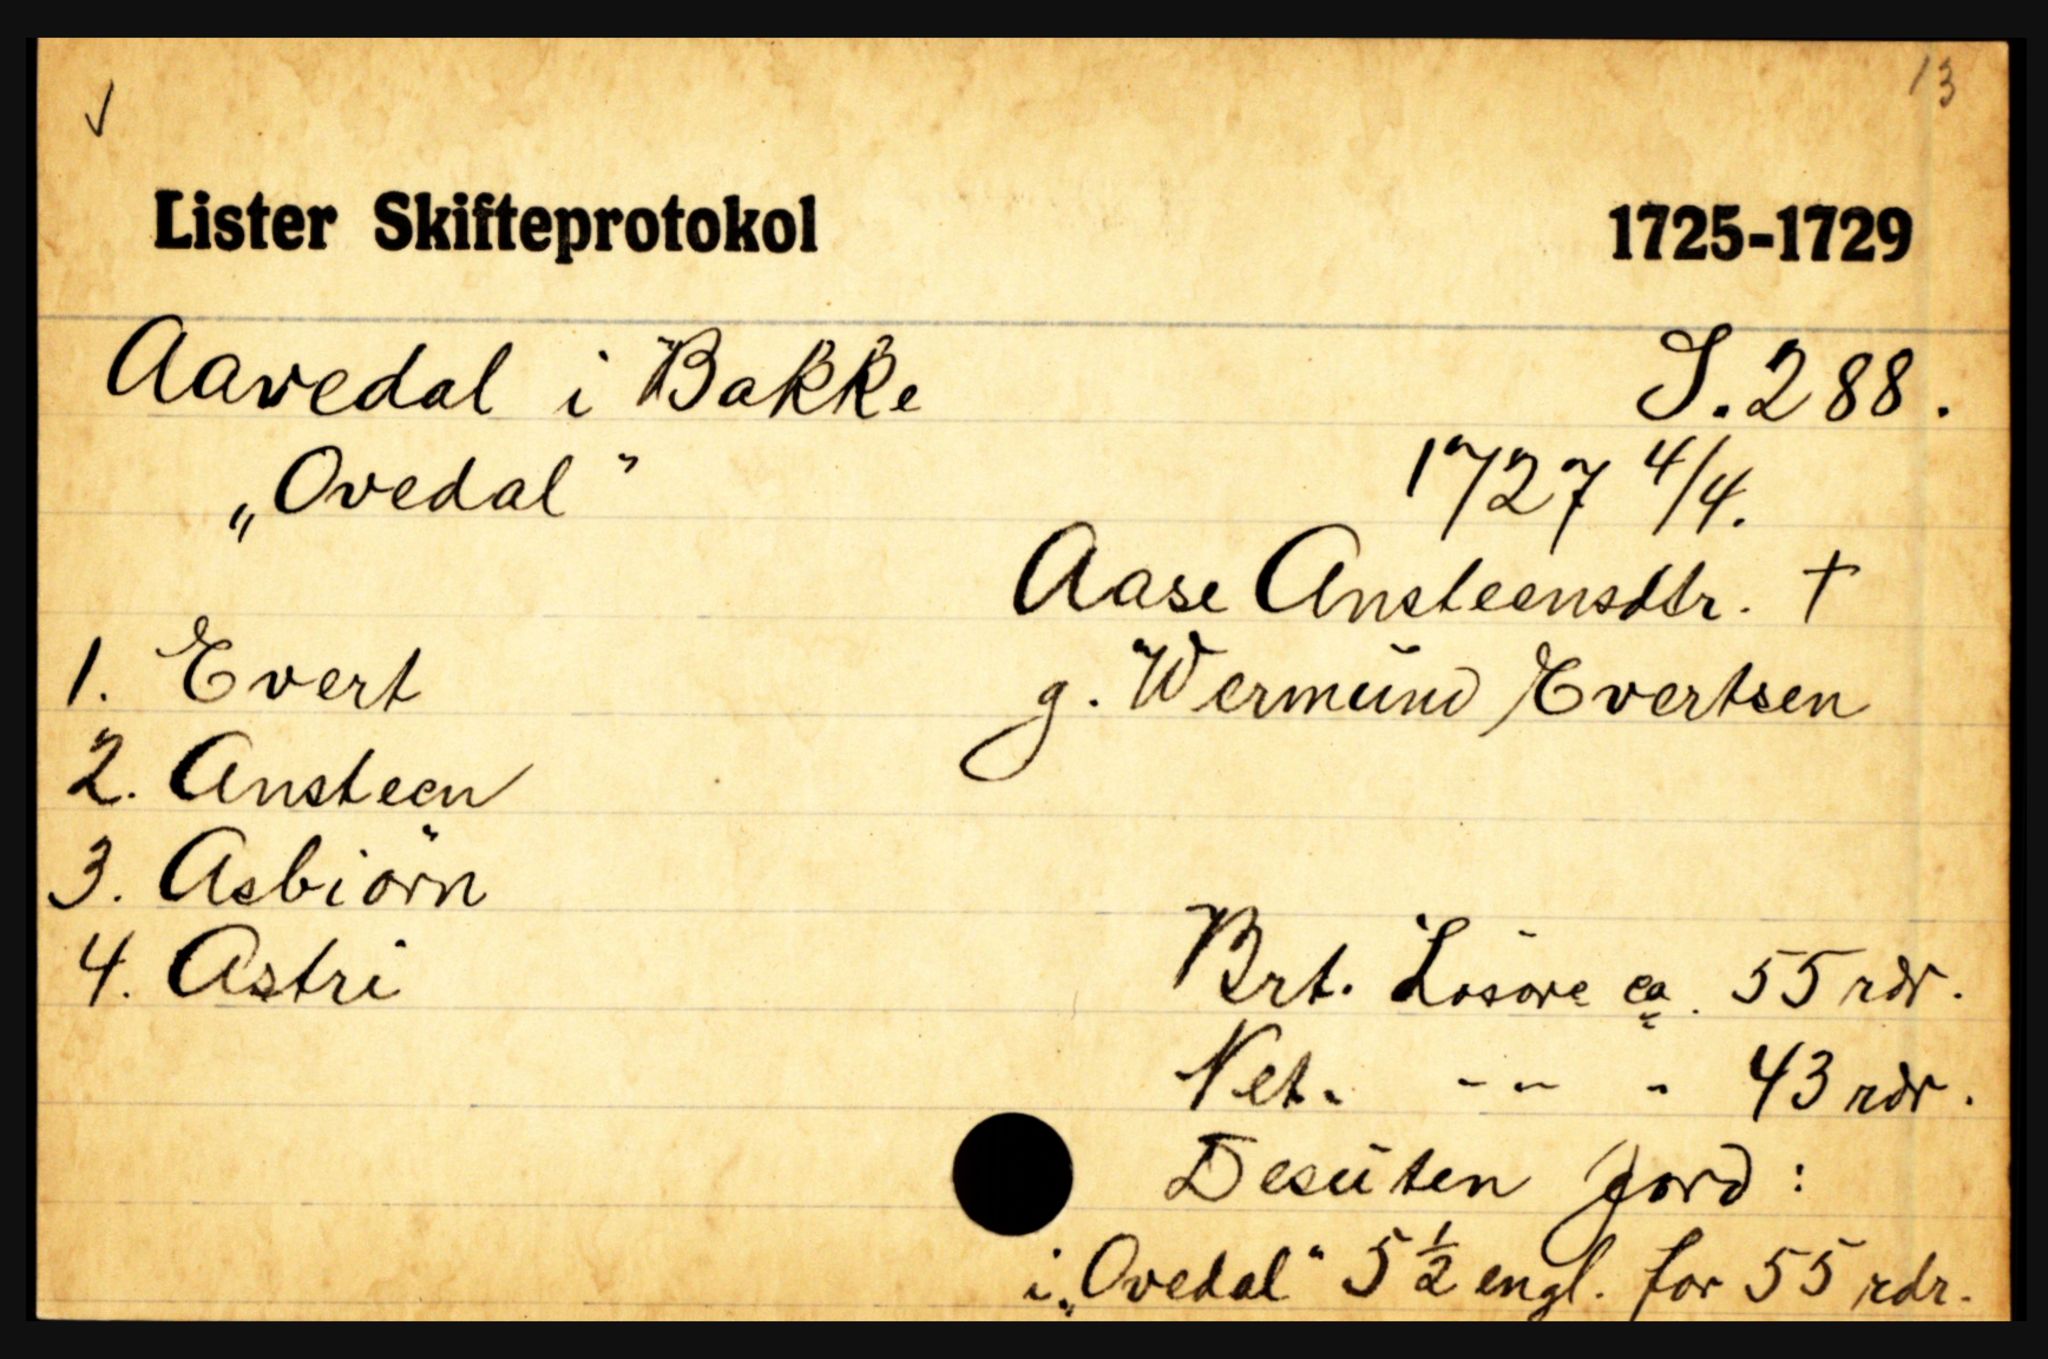 ✓
13
Lister Skifteprotokol 1725-1729
Aavedal i Bakke S. 288.
„Ovedal" 1727 4/4.
Aase Ansteensdtr. †
1. Evert g. Wermund Evertsen
2. Ansteen
3. Asbiørn
4. Astri Brt. Løsøre ca. 55 rdr.
Net. - - - 43 rdr.
Desuten jord:
i „Ovedal" 5 1/2 engl. for 55 rdr.